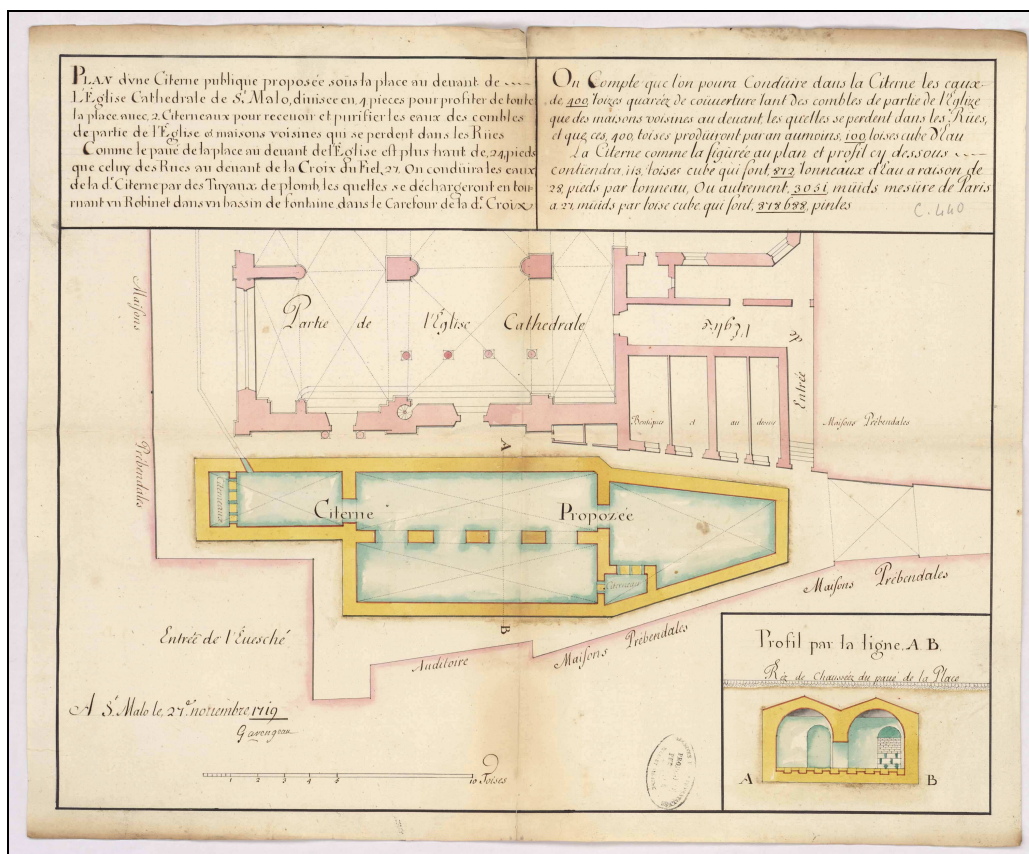 PLAN d'vne Citerne publique proposée sous la place au deuant de ----
L'Église Cathedrale de St. Malo, diuisée en, 4 pieces pour profiter de toute
la place auec, 2, Citerneaux pour receuoir et purifier les eaux des combles
de partie de l'Église et maisons voisines qui se perdent dans les Rües
Comme le paué de la place au deuant de l'Église est plus haut de, 24, pieds
que celuy des Rues au deuant de la Croix du Fiel, 27. On conduira les eaux
de la de. Citerne par des Tuyaux de plomb, les quelles se déchargeront en tour-
nant vn Robinet dans vn bassin de fontaine, dans le Carefour de la de. Croix
On Compte que l'on poura Conduire dans la Citerne les eaux-
de 400, toizes quareéz de couuerture tant des combles de partie de l'Église
que des maisons voisines au deuant, les quelles se perdent dans les Rües,
et que ces, 400, toises produiront par an aumoins, 100 toises cube D'Eau
La Citerne comme la figurée au plan et profil cy dessous ----
contiendra, 113, toises cube qui font, 872 Tonneaux D'eau a raison de
28, pieds par tonneau, Ou autrement, 3051 müids mesüre de Paris
a 27, müids par toise cube qui font, 878688, pintes
C. 440
Maisons Prébendales
Partie de l'Église Cathedrale
l'Eglise
Entrée de
Boutiques et au dessus
Maisons Prébendales
A
Citerne Propozée
Citerneaux
Citerneau
B
Maisons Prébendales
Maisons Prébendales
Auditoire
Entrée de l'Euesché
A St. Malo le, 27e. nouembre 1719
Garengeau
1 2 3 4 5 10 Toises
Profil par la ligne. A. B.
Réz de Chausseéz du paué de la Place
A B